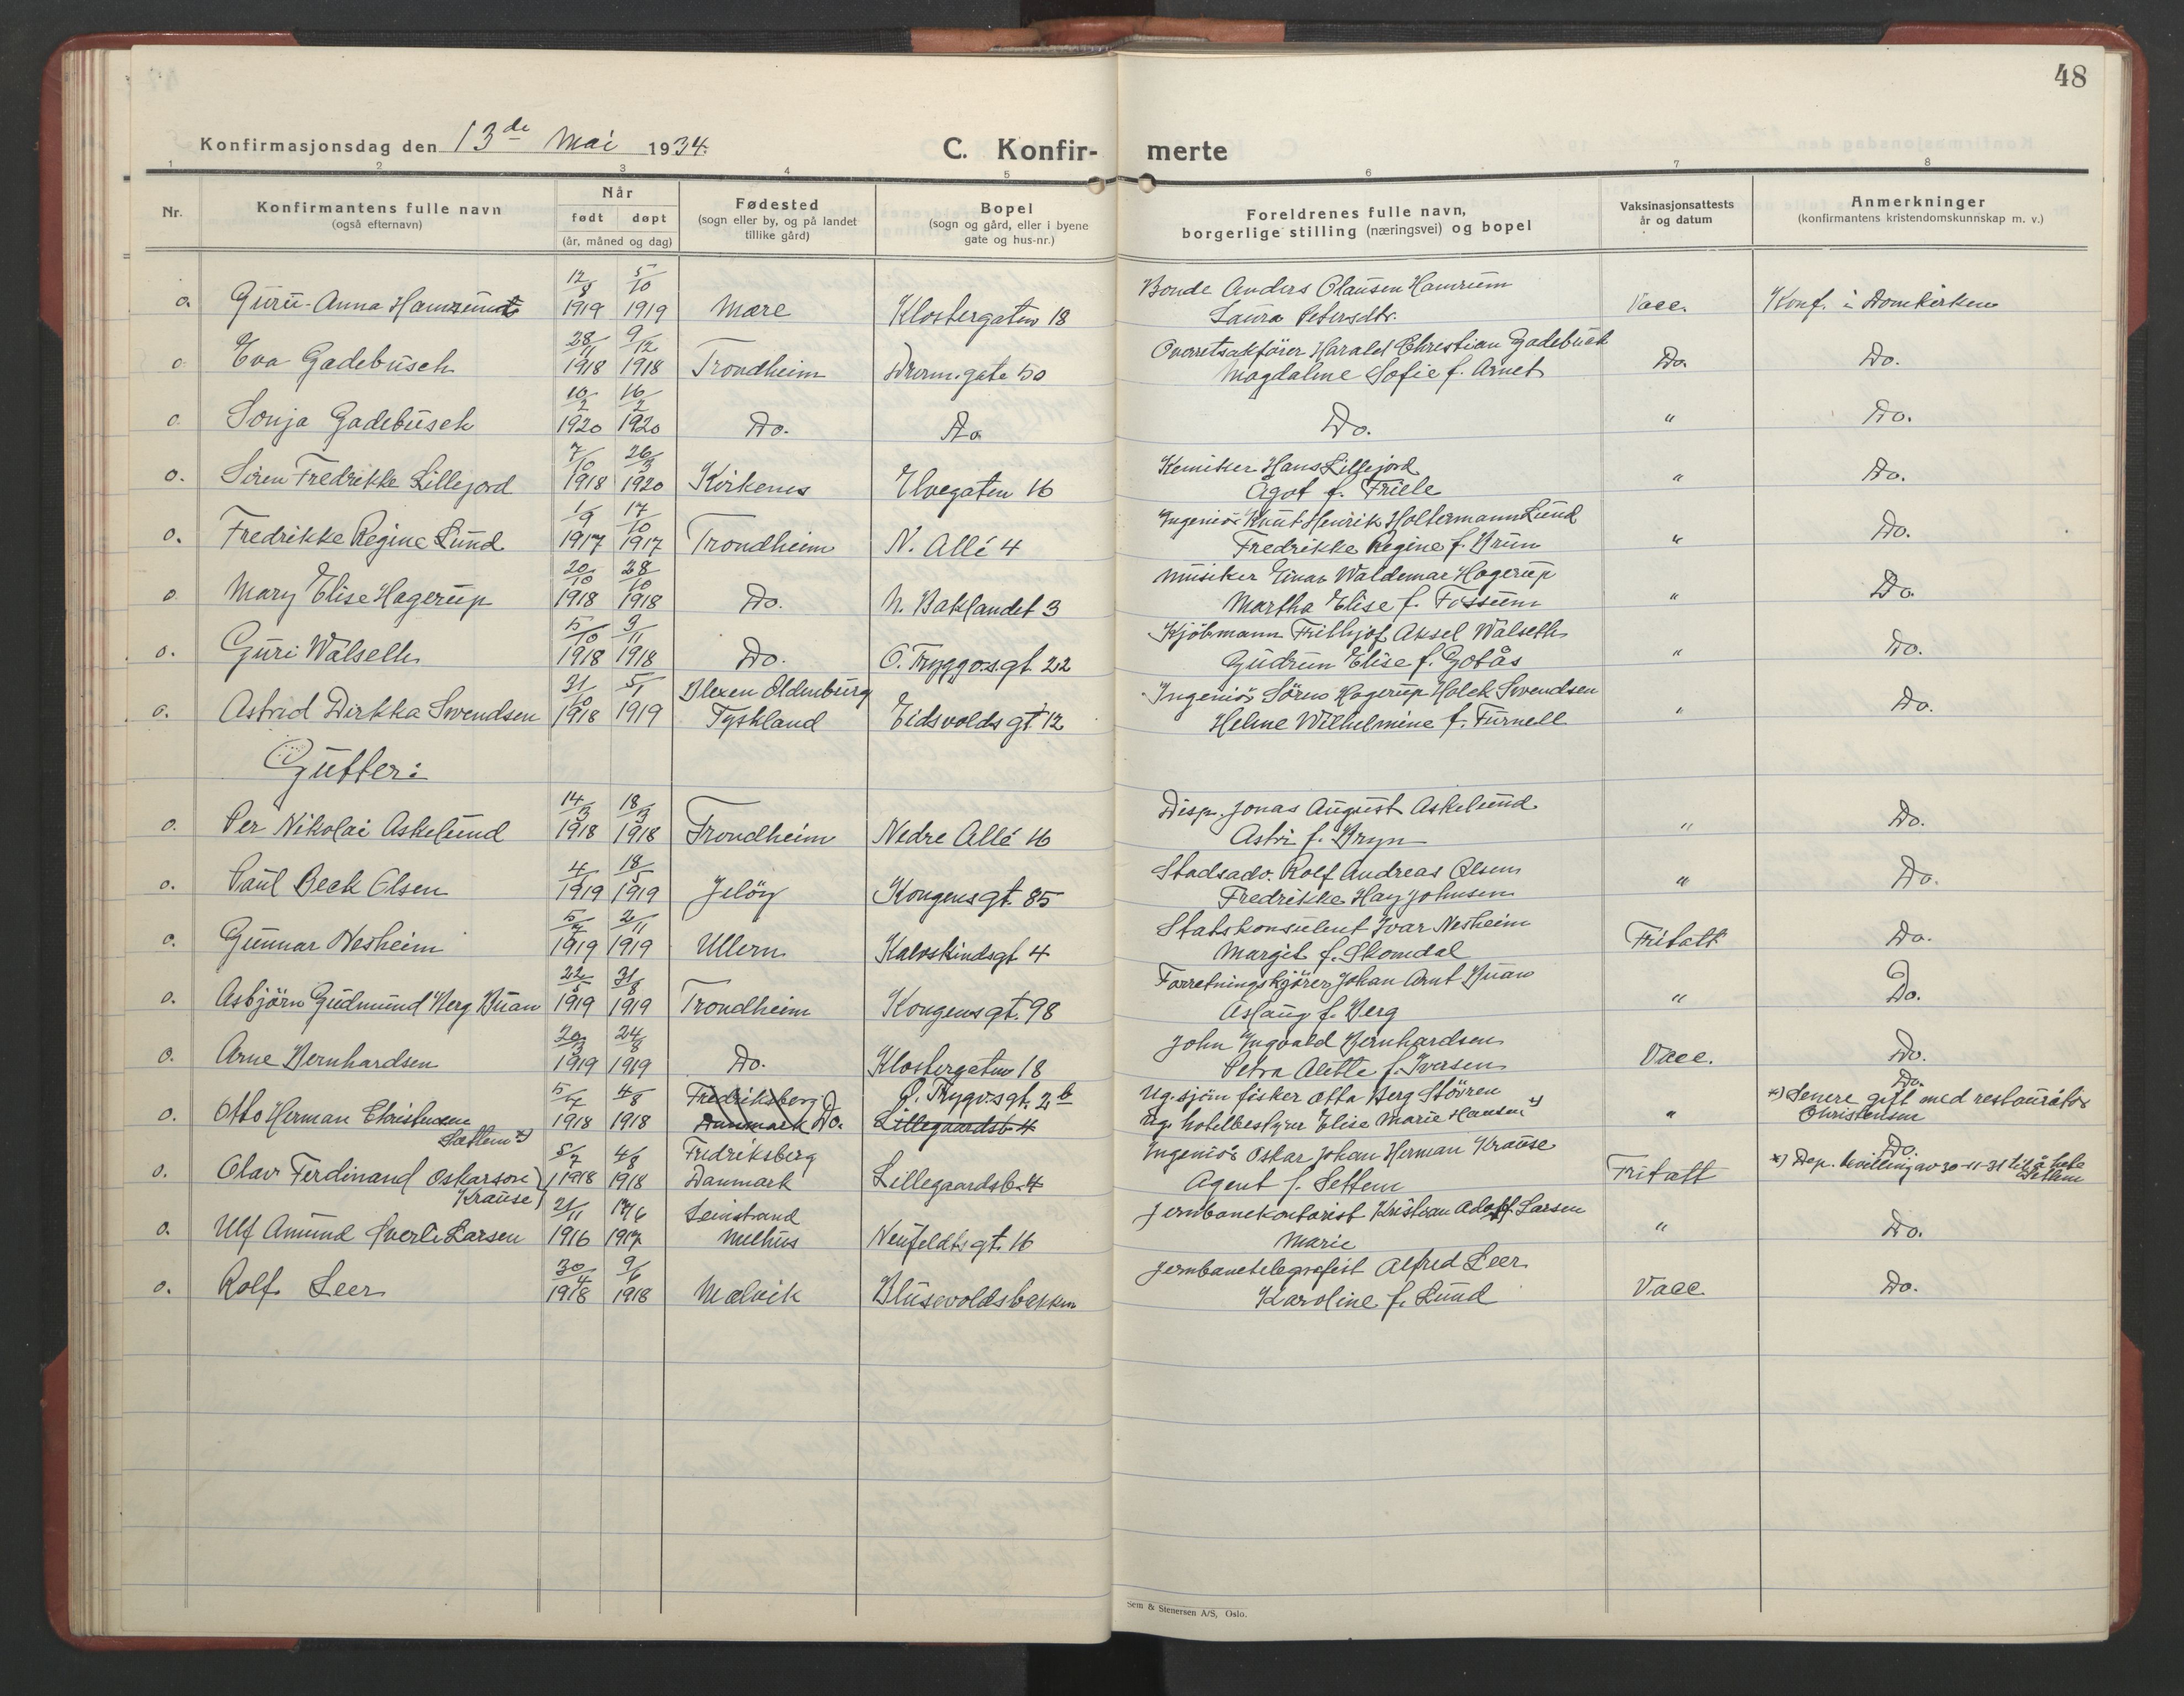 48
Konfirmasjonsdag den 13de Mai 1934.
C. Konfirmerte
1 2 3 4 5 6 7 8
Nr.
Konfirmantens fulle navn (også efternavn)
Når født døpt (år, måned og dag)
Fødested (sogn eller by, og på landet tillike gård)
Bopel (sogn og gård, eller i byene gate og hus-nr.)
Foreldrenes fulle navn, borgerlige stilling (næringsvei) og bopel
Vaksinasjonsattests år og datum
Anmerkninger (konfirmantens kristendomskunnskap m. v.)
o. Guru-Anna 12/8 1919 5/10 1919 Mære Klostergaten 18 Bonde Anders Olausen Hamrum Laura Petersdtr. Vacc. Konf. i Domkirken
o Eva Gadebusch 28/11 1918 9/12 1918 Trondheim Dronn.gate 50 Overretsakfører Harald Christian Gadebusch Magdalene Sofie f. Arnet Do. Do.
o Sonja Gadebusch 10/2 1920 16/2 1920 Do. Do Do. " Do.
o. Siren Fredrikke Lillejord 7/10 1918 26/3 1920 Kirkenes Elvegaten 16 Kemiker Hans Lillejord Ågot f. Friele " Do.
o. Fredrikke Regine Lund 1/9 1917 17/10 1917 Trondheim N. Allé 4 Ingeniör Knut Henrik Holtermann Lund Fredrikke Regine f. Brun " Do.
o Mary Elise Hagerup 20/10 1918 28/10 1918 Do. N. Baklandet 3 Musiker Einar Waldemar Hagerup Martha Elise f. Fossum " Do.
o. Guri Walseth 5/10 1918 3/11 1918 Do. O. Tryggv.s.gt. 22 Kjöbmann Frithjof Aksel Walseth Gudrun Elise f. Gotås " Do.
o. Astrid Dirkka Svendsen 31/10 1918 5/1 1919 Blexen Oldenburg Tyskland Eidsvolds gt. 12 Ingeniör Sören Hagerup Holck Svendsen Helene Wilhelmine f. Furnell " Do.
Gutter:
o. Per Nikolai Askelund 14/3 1918 18/3 1918 Trondheim Nedre Allé 16 Disp. Jonas August Askelund Astri f. Bryn " Do.
o. Paul Beck Olsen 4/1 1919 18/5 1919 Jelöy Kongens gt. 85 Stadsadv. Rolf Andreas Olsen Fredrikke Hay Johnsen " Do.
o. Gunnar Nesheim 5/7 1919 2/11 1919 Ullern Kalvskindsgt. 4 Statskonsulent Ivar Nesheim Margit f. Skomdal Fritatt Do.
o. Asbjörn Gudmund Berg Buan 22/5 1919 31/8 1919 Trondheim Kongens gt. 98 Forretningskjörer Johan Arnt Buan Aslaug f. Berg " Do.
o. Arne Bernhardsen 20/3 1919 24/8 1919 Do. Klostergaten 18 John Ingvald Bernhardsen Petra Alette f. Iversen Vacc. Do.
o. Otto Herman Christensen 5/7 1918 4/8 1918 Fredriksberg Danmark Do. O. Trygv.s gt. 2b Lillegaardsb. 4 Ug. sjöm fisker Otto Berg Stövren Ug. hotelbestyrer Elise Marie Hansen x) " Do. x) Senere gift med restauratör Christensen
o. Olav Ferdinand Oskarson Krause Settem x) 5/7 1918 4/8 1918 Fredriksberg Danmark Lillegaardsb. 4 Ingeniör Oskar Johan Herman Krause Agent f. Settem Fritatt Do. x) Dep. bevilling av 30-11-31 til å hete Settem
o. Ulf Amund Sverli Larsen 21/11 1916 17/6 1917 Leinstrand Melhus Neufeldts gt. 16 Jernbanekontorist Kristian Adolf Larsen Marie " Do.
o. Rolf Leer 30/4 1918 9/6 1918 Malvik Blusevoldsbakken Jernbanetelegrafist Alfred Leer Karoline f. Lund Vacc. Do.
Sem & Stenersen A/S, Oslo.